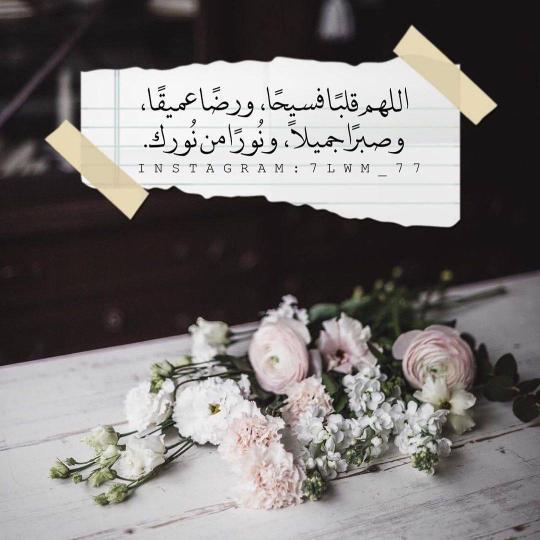 اللهم قلبًا فسيحًا، ورضًا عميقًا،
وصبرًا جميلاً، ونُورًا من نُورك.
INSTAGRAM:7LWM_77